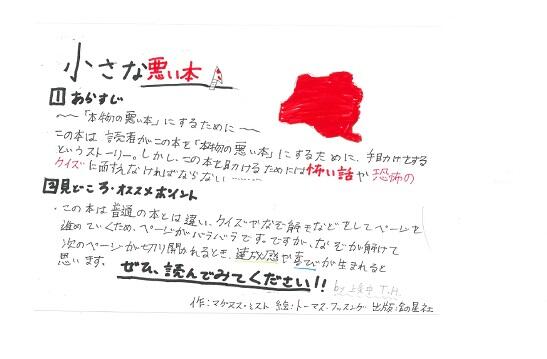 小さな悪い本
1 あらすじ
～「本物の悪い本」にするために～
この本は読者がこの本を「本物の悪い本」にするために、手助けをする
というストーリー。しかし、この本を助けるためには怖い話や恐怖の
クイズに耐えなければならない………
2 見どころ・オススメポイント
・この本は普通の本とは違い、クイズやなぞ解きなどをしてページを
進めていくため、ページがバラバラです。ですが、なぞが解けて
次のページが切り開かれるとき、達成感や喜びが生まれると
思います。
ぜひ、読んでみてください!!
by T.H.
作:マグヌス・ミスト 絵:トーマス・フッスング 出版:金の星社